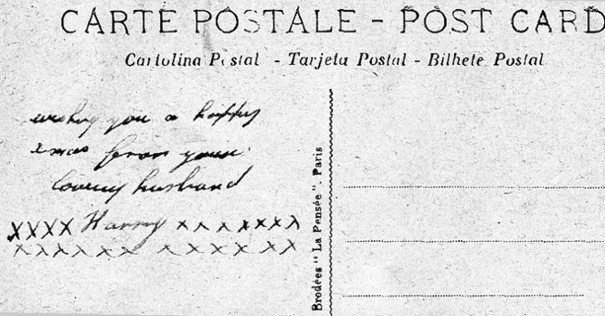 CARTE POSTALE - POST CARD
Cartolina Postal - Tarjeta Postal - Bilhete Postal
wishing you a happy
xmas from your
loving husband
XXXX Harry xxxxxxxx
xxxxxxx xxxxxx
Brodées "La Pensée". Paris